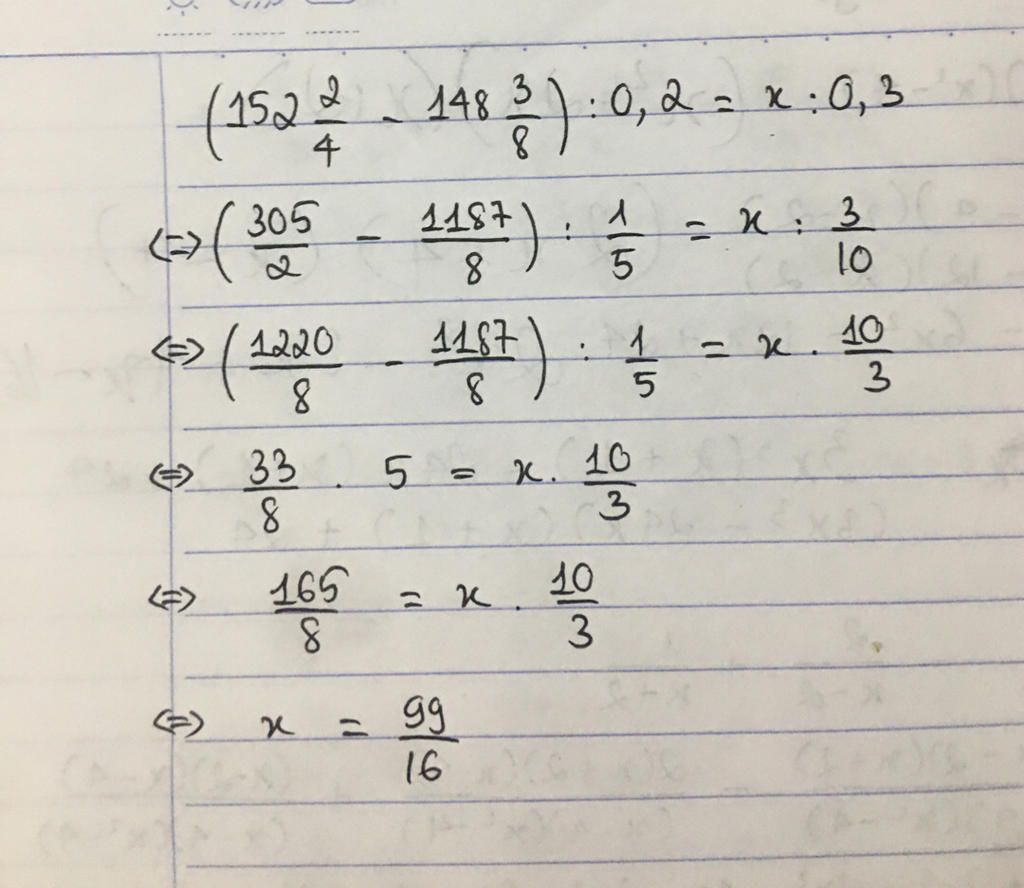 (152 2/4 - 148 3/8) : 0,2 = x : 0,3
<=> (305/2 - 1187/8) : 1/5 = x : 3/10
<=> (1220/8 - 1187/8) : 1/5 = x . 10/3
<=> 33/8 . 5 = x . 10/3
<=> 165/8 = x . 10/3
<=> x = 99/16